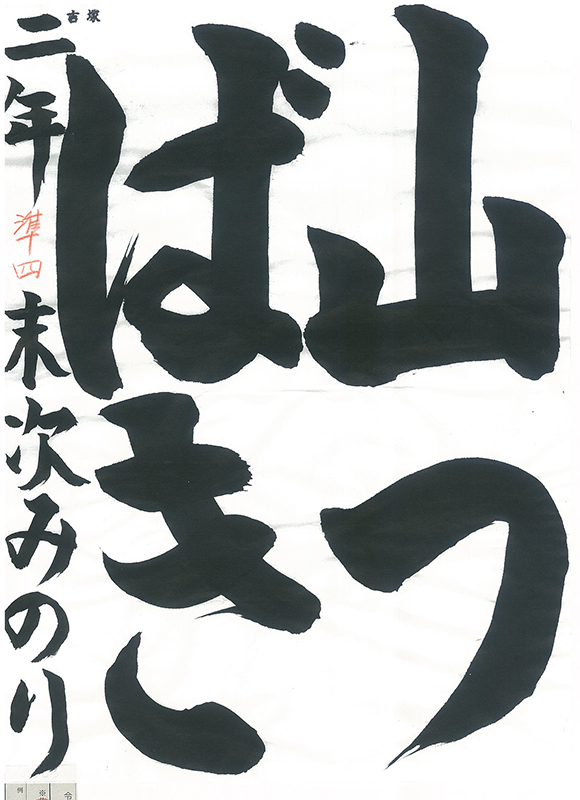 山つ
ばき
吉塚
二年 準四 末次みのり
令
※
例